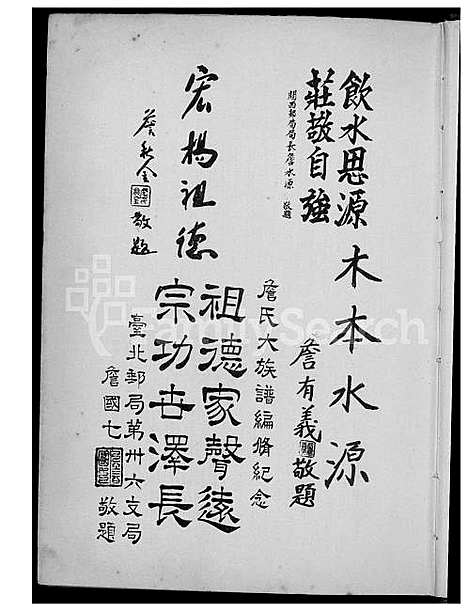 飲水思源
莊敬自強
關西郵局局長詹水源 敬題
宏揚祖德
詹秋金 敬題
木本水源
詹有義 敬題
詹氏大族譜編脩紀念
祖德家聲遠
宗功世澤長
臺北郵局第卅六支局
詹國七 敬題
FamilySearch